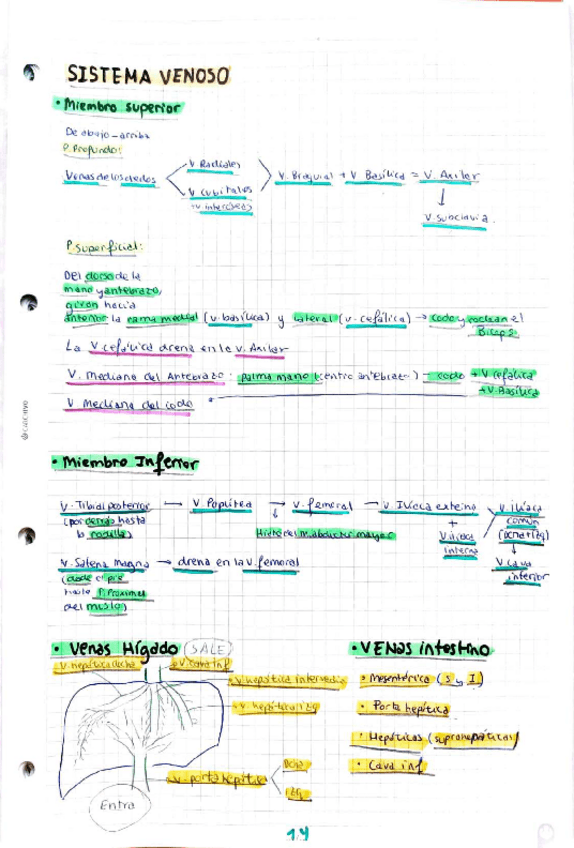 SISTEMA VENOSO
• Miembro superior
De abajo - arriba
P. Profundo:
Venas de los dedos
V Radiales
V cubitales
+ V. Braquial + V Basílica = V. Axilar
V subclavia.
P. superficial:
Del dorso de la
mano y antebrazo,
giran hacia
anterior la rama medial (v. basílica) y lateral (v. cefálica) → codo y rodean el
Biceps.
La V cefálica drena en la V. Axilar
V. Mediana del Antebrazo: palma mano (centro antebrazo) → codo + V cefálica
+ V. Basílica
V Mediana del codo "
• Miembro Inferior
V. Tibial posterior → V Poplítea → V. femoral → V. Ilíaca externa
V. ilíaca
(por detrás hasta
la rodilla)
común
+
V ilíaca
interna
(dcha + izq)
Hiato del M. abductor mayor
V cava
inferior
V. Safena magna → drena en la V. femoral
(desde el pie
hasta P. Proximal
del muslo)
• Venas Hígado (SALE)
V. hepática dcha
V. cava inf
V. hepática intermedia
V. hepática izq
V. porta hepática
Dcha
Izq
Entra
• VENAS intestino
• Mesentérica (S y I)
• Porta hepática
• Hepáticas (suprahepáticas)
• Cava inf
14